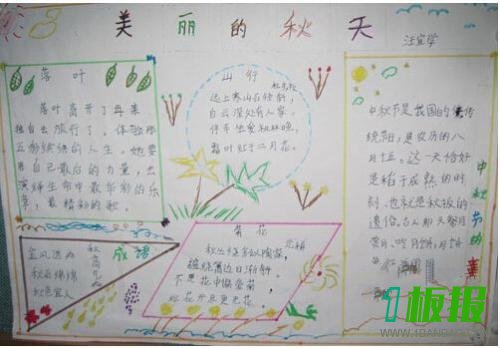 美丽的秋天
汪宜学
落叶
落叶离开了母亲
独自去旅行了。体验
五彩缤纷的人生。她要
用自己最后的力量,去
演绎生命中最华彩的乐
章,最精彩的歌。
山行
杜牧
远上寒山石径斜,
白云深处有人家。
停车坐爱枫林晚,
霜叶红于二月花。
成语
金风送爽
秋雨绵绵
秋色宜人
秋高气爽
菊花
元稹
秋丛绕舍似陶家,
遍绕篱边日渐斜。
不是花中偏爱菊,
此花开尽更无花。
中秋节是我国的传
统节,是农历的八
月十五。这一天恰好
是稻子成熟的时
刻,
中秋节的
1板报
WWW.1BANBAO.COM